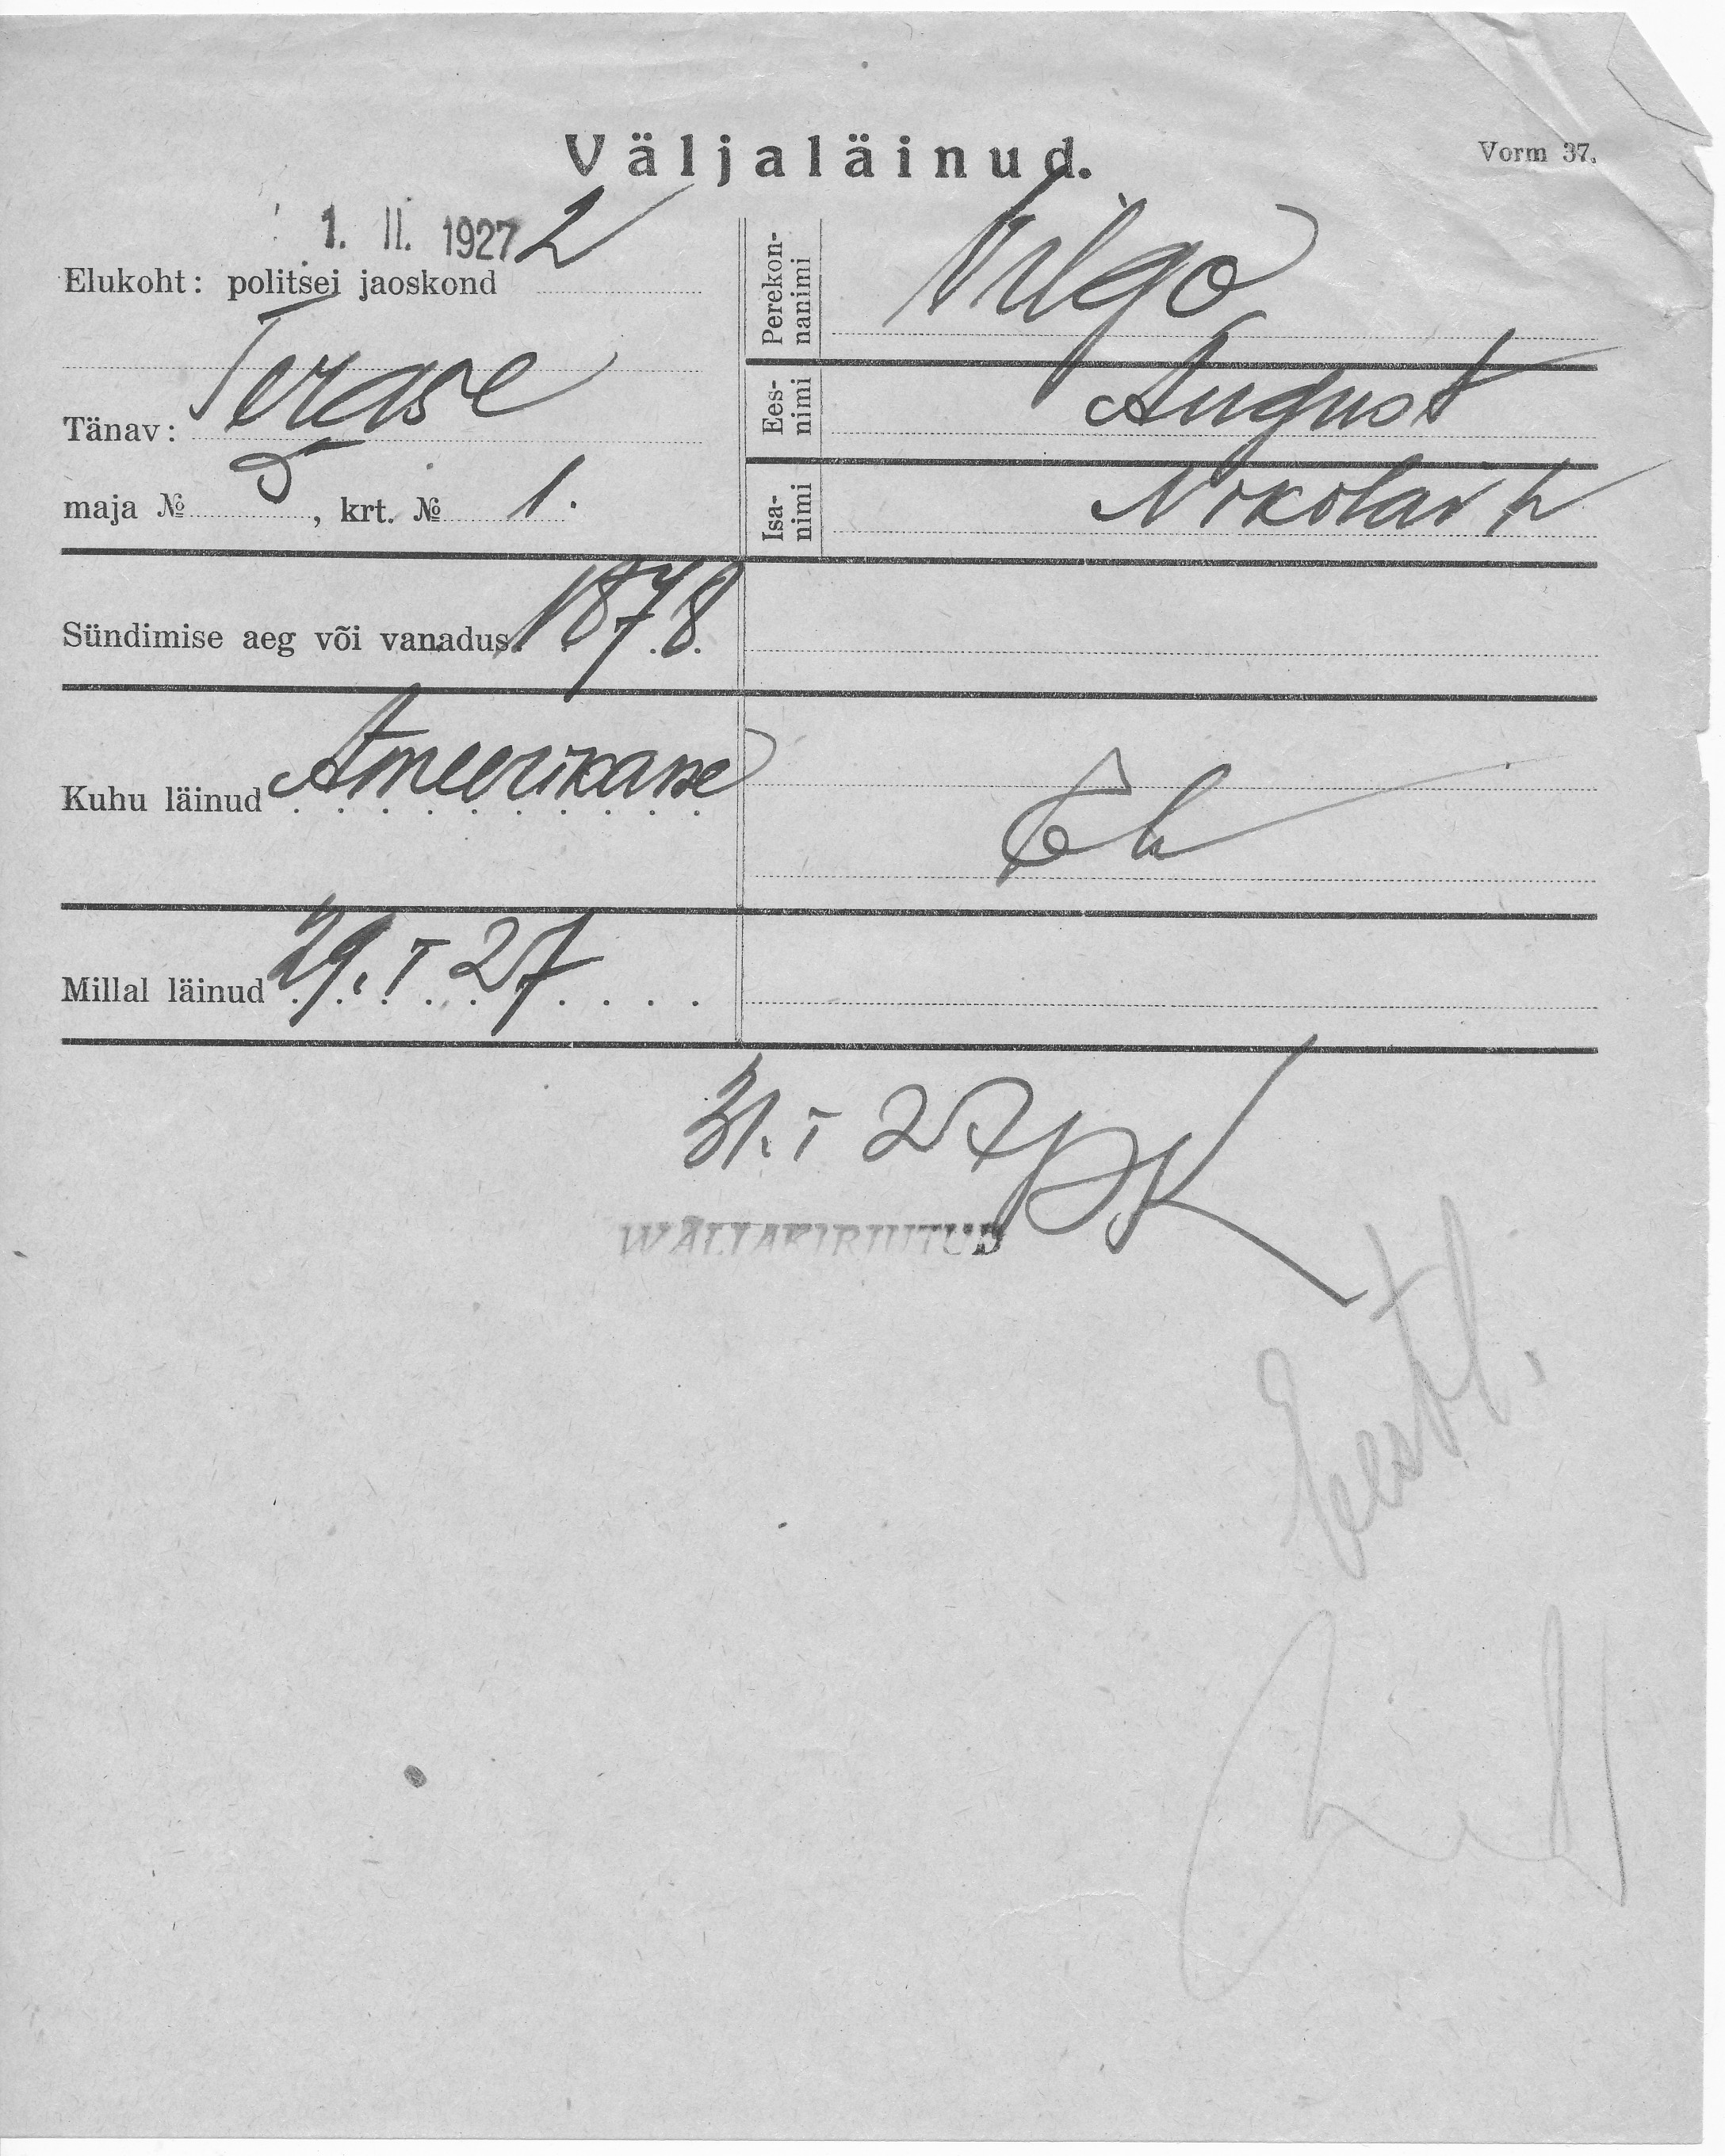 Väljaläinud.
Vorm 37.
1. II. 1927
Elukoht: politsei jaoskond 2
Tänav: Terase
maja № 5, krt. № 1.
Perekon-
nanimi Vilgo
Ees-
nimi August
Isa-
nimi Nikolai p
Sündimise aeg või vanadus 1878
Kuhu läinud Ameerikasse
Millal läinud 29. I 27
31. I 27
WÄLJAKIRJUTUD
Eestl.